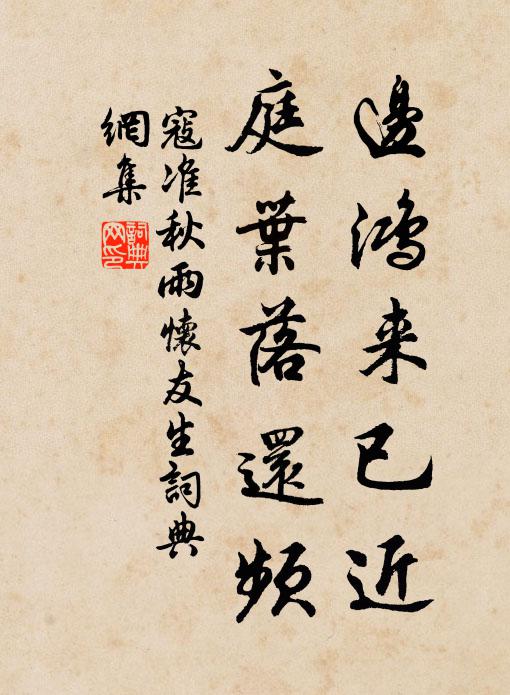 邊鴻来已近
庭葉落還頻
寇准秋雨懷友生詞典
網集
詞典
网印